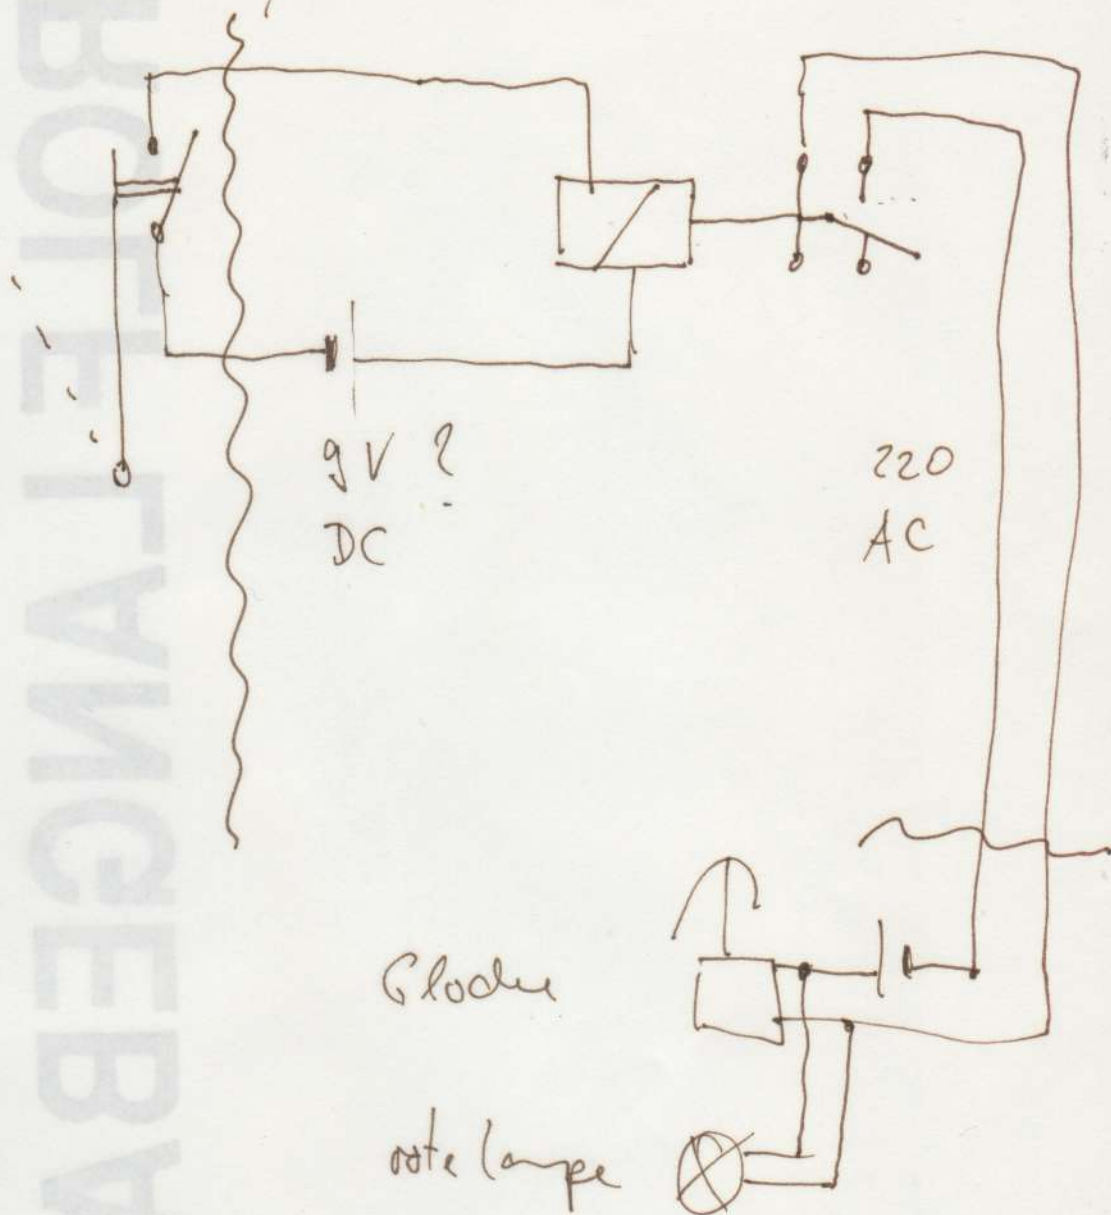 9V ?
DC
220
AC
Glocke
rote lampe